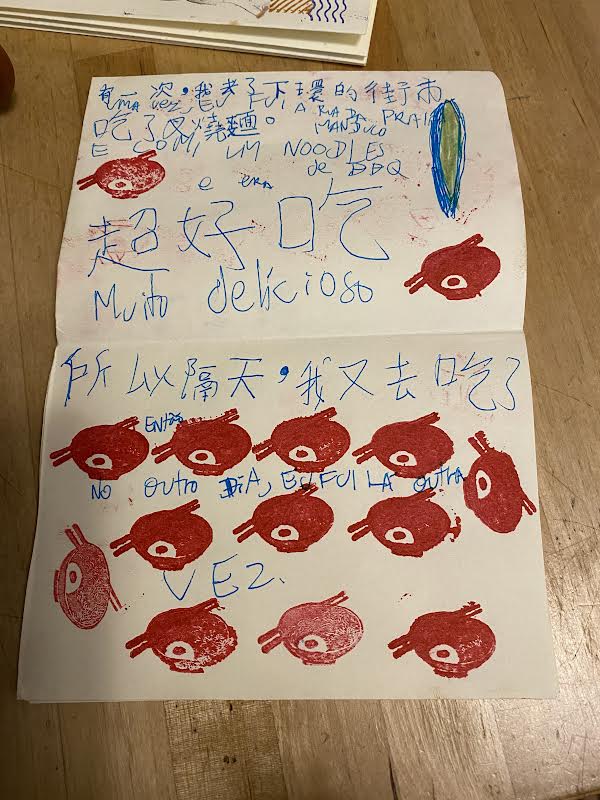 有一次，我去了下環的街市
UMA VEZ, EU FUI A RUA DA PRAIA
吃了叉燒麵。
MANDUCO
E COMI UM NOODLES
de BBQ
e era
超好吃
Muito delicioso
所以隔天，我又去吃了
ENTÃO
NO OUTRO DIA, EU FUI LA OUTRA
VEZ.